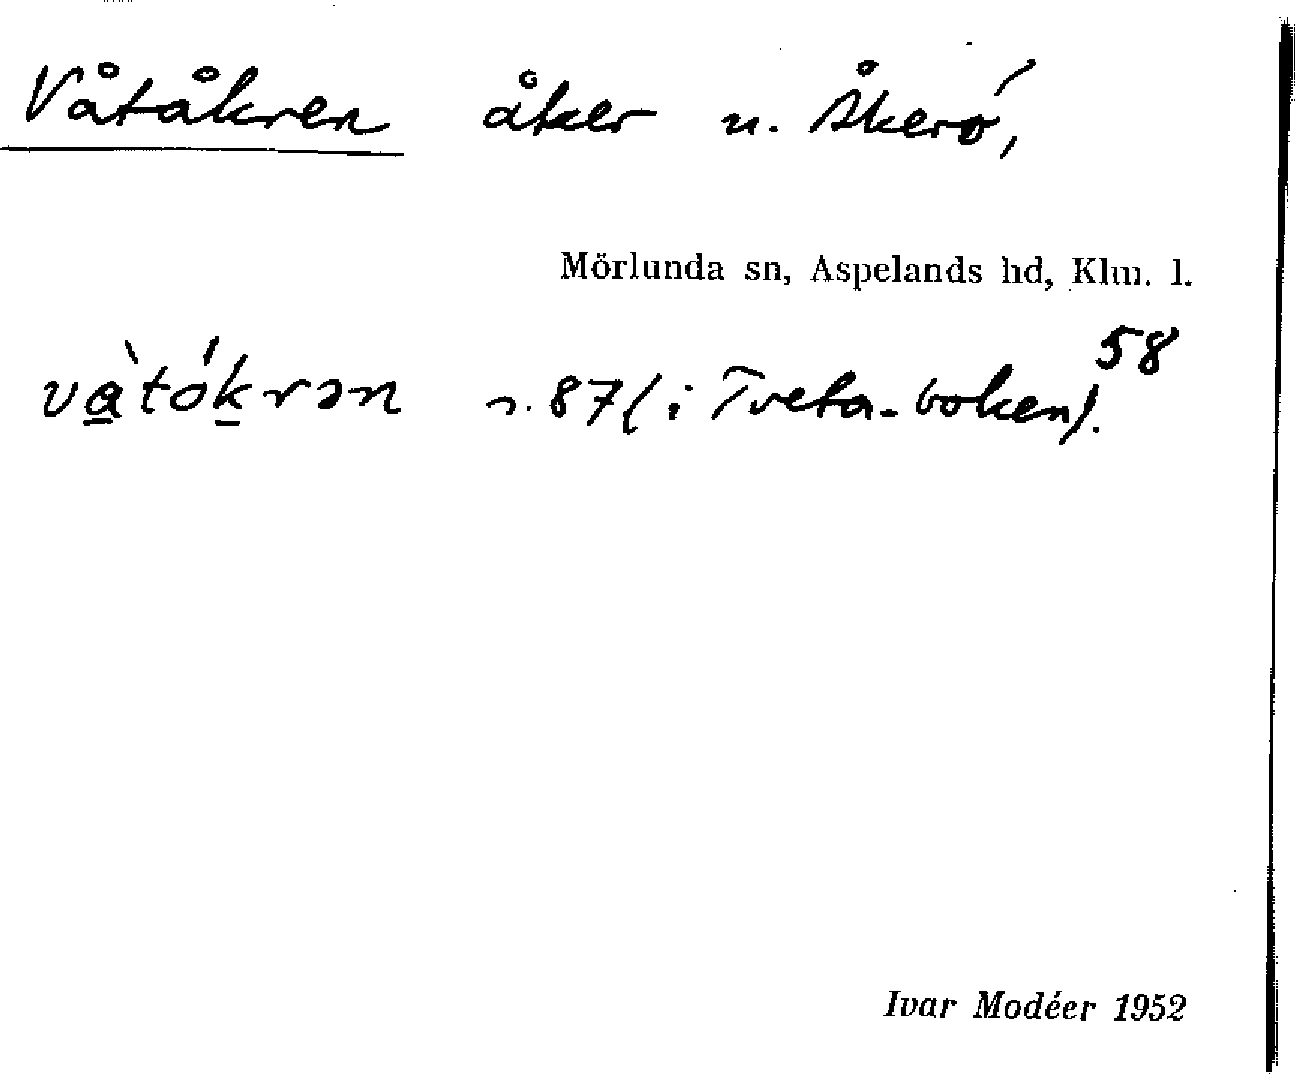 Våtåkren åker u. Åkerö,
Mörlunda sn, Aspelands hd, Klm. l.
58
và̲tók̲rən s. 87 (i Tveta-boken).
Ivar Modéer 1952